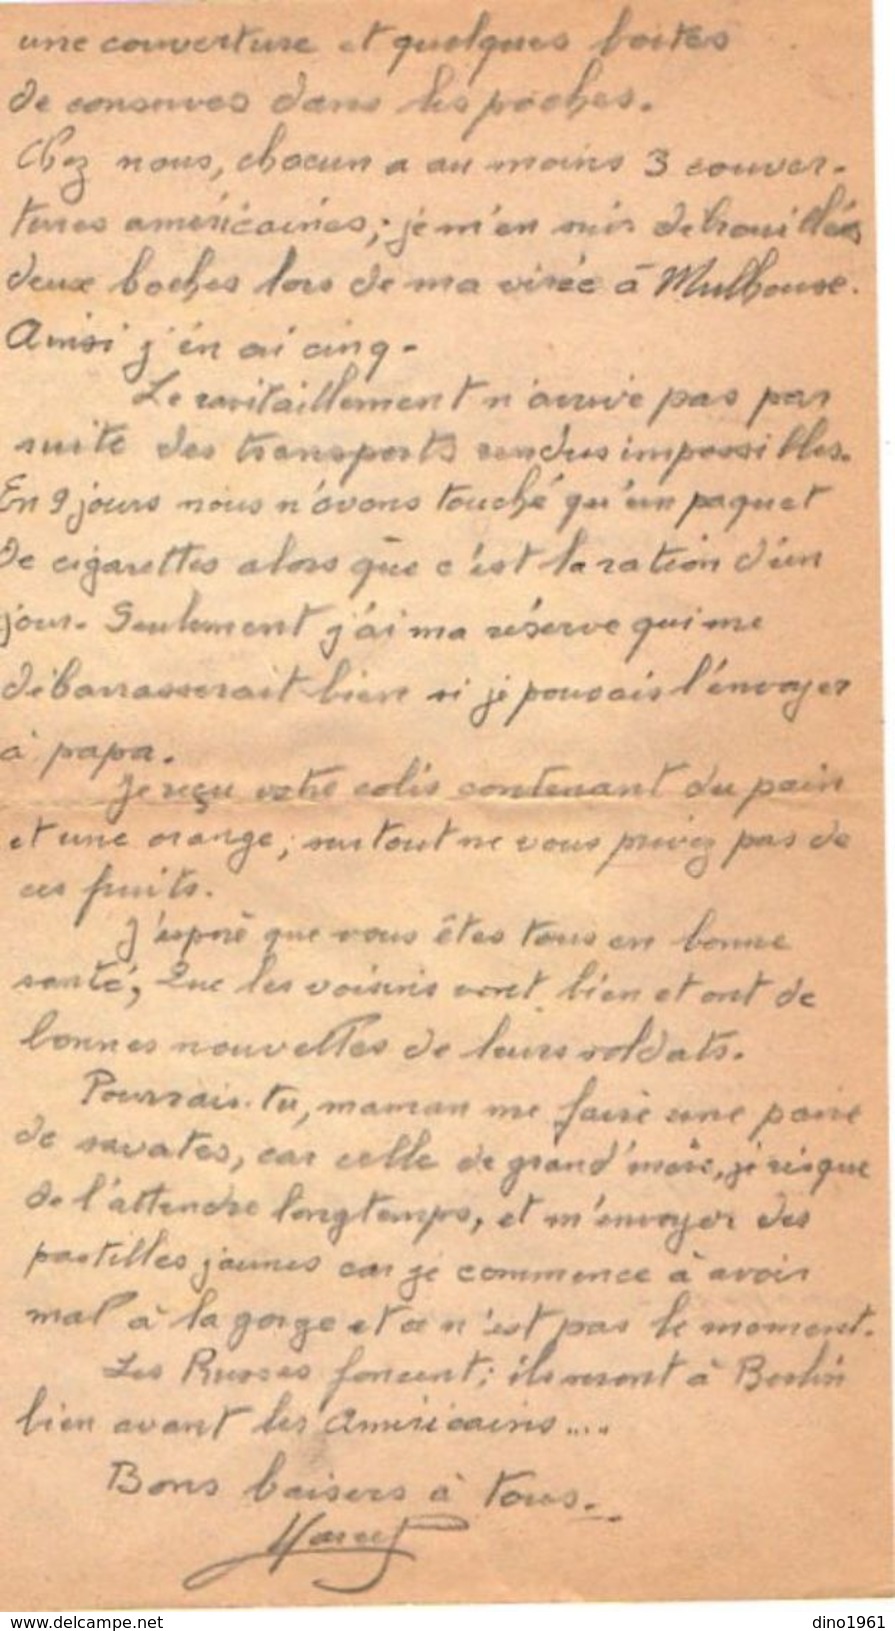 une couverture et quelques boites
de conserves dans les poches.
Chez nous, chacun a au moins 3 couver-
tures américaines; je m'en suis débrouillées
deux boches lors de ma virée à Mulhouse.
Ainsi j'en ai cinq -
Le ravitaillement n'arrive pas par
suite des transports rendus impossibles.
En 9 jours nous n'avons touché qu'un paquet
de cigarettes alors que c'est la ration d'un
jour. Seulement j'ai ma réserve qui me
débarrasserait bien si je pouvais l'envoyer
à papa.
Je reçu votre colis contenant du pain
et une orange; surtout ne vous privez pas de
ces fruits.
J'espère que vous êtes tous en bonne
santé, que les voisins vont bien et ont de
bonnes nouvelles de leurs soldats.
Pourrais-tu, maman me faire une paire
de savates, car celle de grand'mère, je risque
de l'attendre longtemps, et m'envoyer des
pastilles jaunes car je commence à avoir
mal à la gorge et ce n'est pas le moment.
Les Russes foncent; ils seront à Berlin
bien avant les Américains....
Bons baisers à tous.
Marcel
www.delcampe.net
dino1961